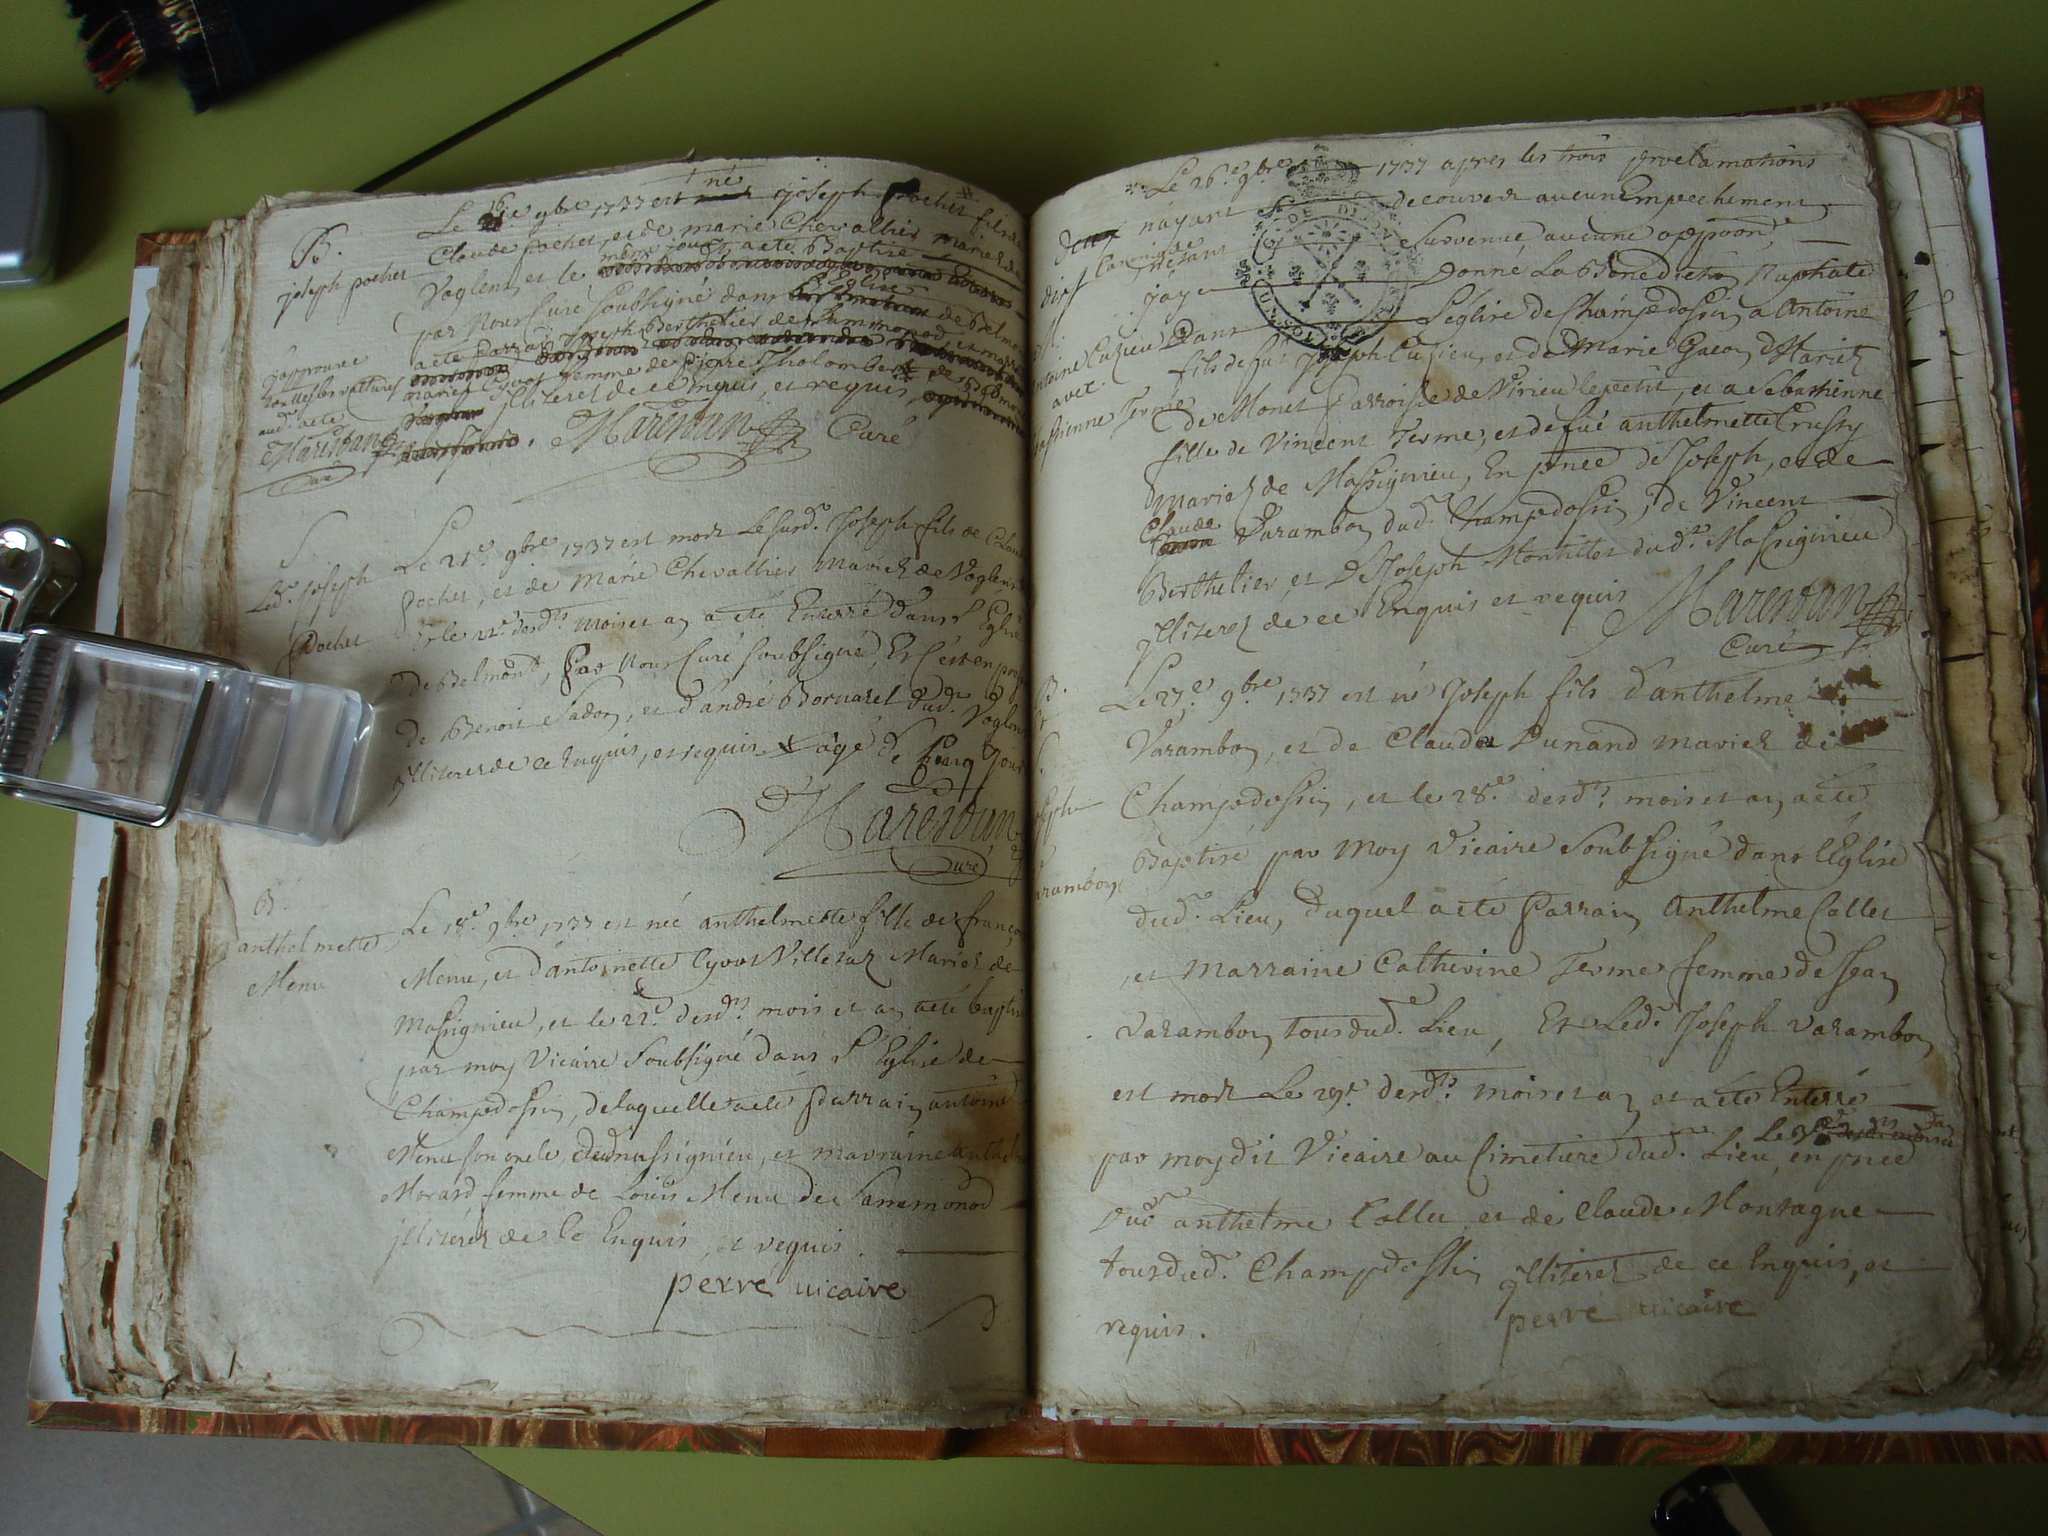 B.
joseph pochet
Le 16e 9bre 1737 est né joseph pochet fils de
Claude pochet, et de marie Chevallier mariez de
Voglens, et le même jour a eté Baptisé
par Nous Curé soubsigné dans l'Eglise de Belmont
a eté parrain joseph Berthelier de Sammonod, et marr
marie Cyvot femme de pierre Tholombert, de Belmont
jlliterez de ce enquis, et requis,
j'approuve
aud. acte
Maresdan
Curé
Maresdan Curé
S.
Led. joseph
Pochet
Le 21e 9bre 1737 est mort Le surd. Joseph fils de Claude
Pochet, et de Marie Chevallier Mariez de Voglens
et le 22e desdts mois et an a eté Enterré dans l'Eglise
de Belmont, Par Nous Curé soubsigné, Et c'est en pnce
de Benoit Sadon, et d'andré Bornarel dud. Voglens
jlliterez de ce Enquis, et requis âgé de Cinq jours
Maresdan
Curé
B.
anthelmette
Menu
Le 18e 9bre 1737 est née anthelmette fille de françois
Menu, et d'antoinette Cyvot Villetaz Mariez de
Massignieu, et le 22e desdts mois et an a eté baptisée
par moy Vicaire soubsigné dans l'Eglise de
Champdossin, de laquelle a eté parrain antoine
Menu son oncle dud massignieu, et marraine anthel
Morard femme de Louis Menu de Sammonod
jlliterez de ce Enquis, et requis.
perre vicaire
Le 26e 9bre 1737 apres les trois proclamations
nayant decouvert aucun Empechement
Canonique n'etant survenue aucune oppoon,
j'ay donné La Benediction Nuptiale
Dans L'église de Champdossin a Antoine
fils de fut Joseph Cuzieu, et de Marie Gacon d'Hariez
de Monet Parroisse de Virieu le petit, et a Sebastienne
fille de Vincent Terme, et de fue anthelmette Crussy
Mariez de Massignieu, En pnce de Joseph, et de
Claude Varambon dud. Champdossin, de Vincent
Berthelier, et de Joseph Montillet dudt Massignieu
jlliterez de ce Enquis et requis Maresdan
Curé
Antoine Cuzieu
avec
Sebastienne Terme
B.
et
S.
Joseph
Varambon
Le 27e 9bre 1737 est né Joseph fils d'anthelme
Varambon, et de Claude Dunand mariez de
Champdossin, et le 28e desdts mois et an a eté
Baptisé par Moy Vicaire soubsigné dans l'Eglise
dud. Lieu, duquel a eté Parrain Anthelme Collet
et Marraine Catherine Terme femme de Jean
Varambon tous dud. Lieu, Et Led. Joseph Varambon
est mort Le 29e desdts mois et an et a eté Enterré
Le 30e desdts mois et an
par moydit Vicaire au Cimetiere dud. Lieu, en pnce
dud anthelme Collet et de Claude Montagne
tous dud. Champdossin jlliterez de ce Enquis, et
requis.
perre vicaire